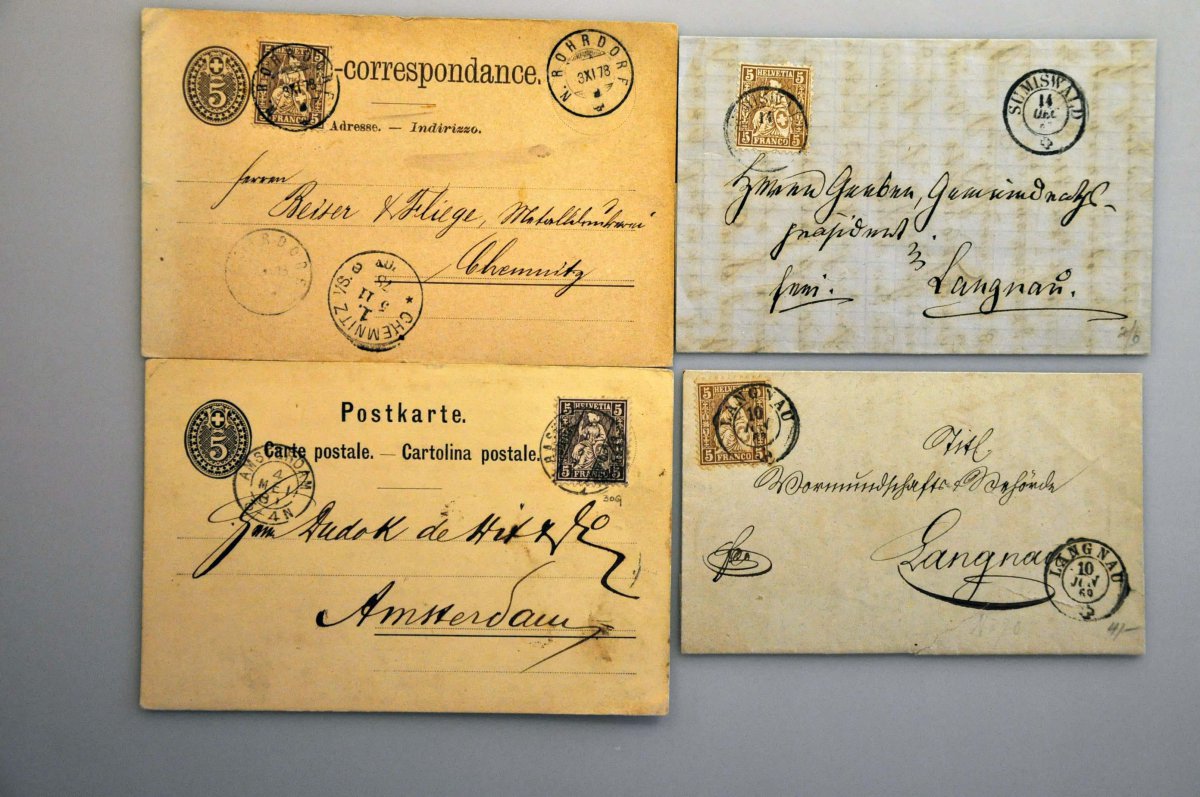 5
5 FRANCO 5
N. ROHRDORF
3 XI 78
-correspondance.
N. ROHRDORF
3 XI 78
Adresse. — Indirizzo.
Herren
Beiser & Fliege, Metalldruckerei
Chemnitz
CHEMNITZ
1.
5 11
78
5 HELVETIA 5
5 FRANCO 5
SUMISWALD
14
DEC
Herren Gerber, Gemeindraths-
präsident
in
frei. Langnau.
5
Postkarte.
Carte postale. — Cartolina postale.
5 HELVETIA 5
5 FRANCO 5
AMSTERDAM
4
4N
309
Herrn Dudok de Wit & Co
Amsterdam
5 5
5 FRANCO 5
LANGNAU
10
JUN
69
Titl
Vormundschafts-Behörde
Langnau
LANGNAU
10
JUN
69
4/-